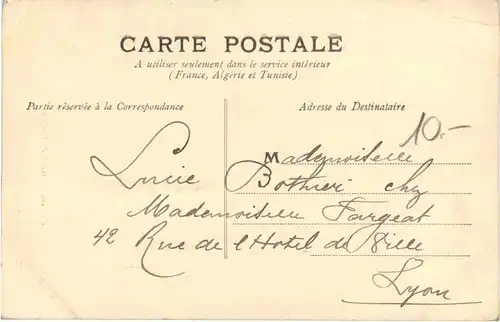 CARTE POSTALE
A utiliser seulement dans le service intérieur
(France, Algérie et Tunisie)
Partie réservée à la Correspondance
Adresse du Destinataire
10.-
Mademoiselle
Lucie Bothieri chz
Mademoiselle Fargeat
42 Rue de l'Hotel de Ville
Lyon